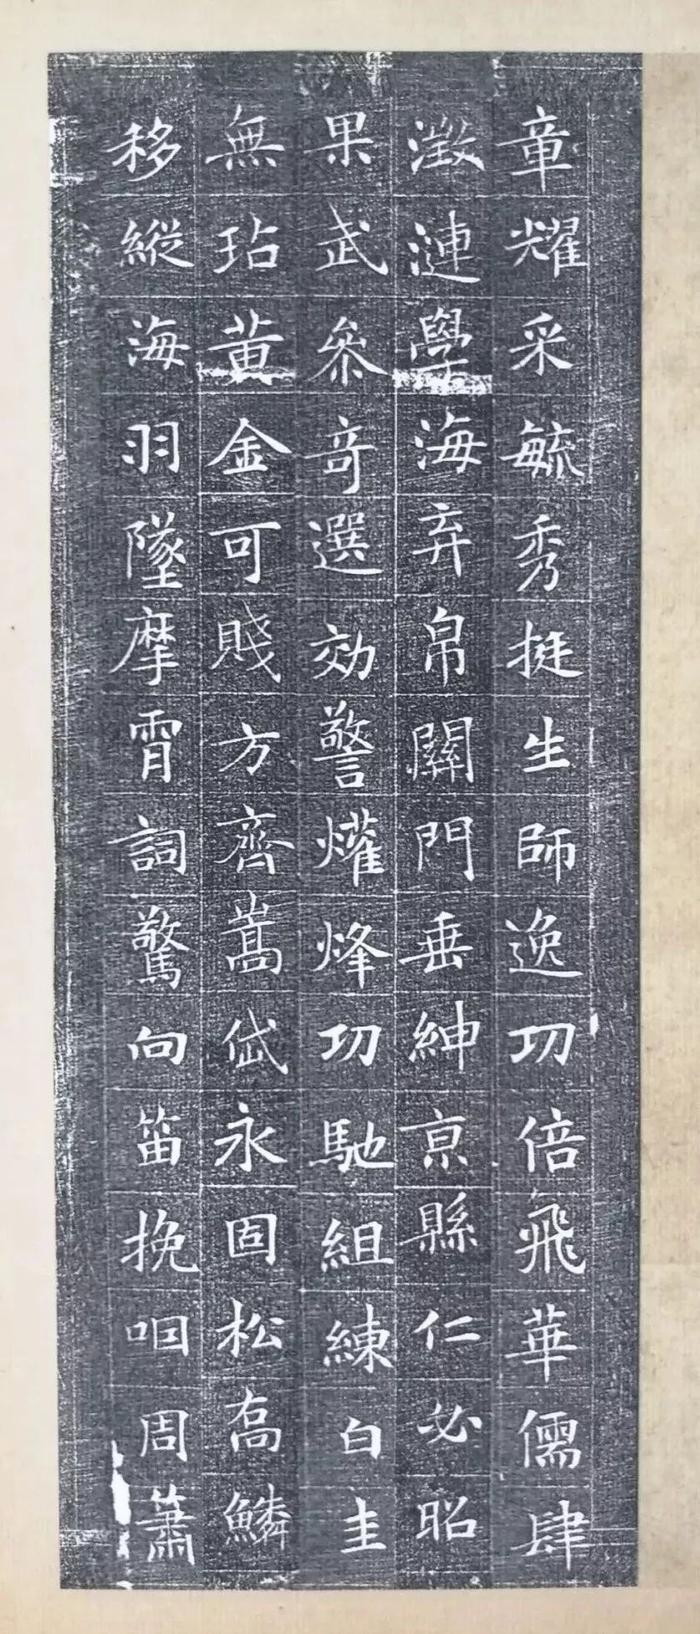 章耀采毓秀挺生師逸功倍飛華儒肆
澂漣學海弃帛關門垂紳京縣仁必昭
果武叅竒選効警爟烽功馳組練白圭
無玷黄金可賤方齊嵩岱永固松喬鱗
移縱海羽墜摩霄詞驚向笛挽咽周簫